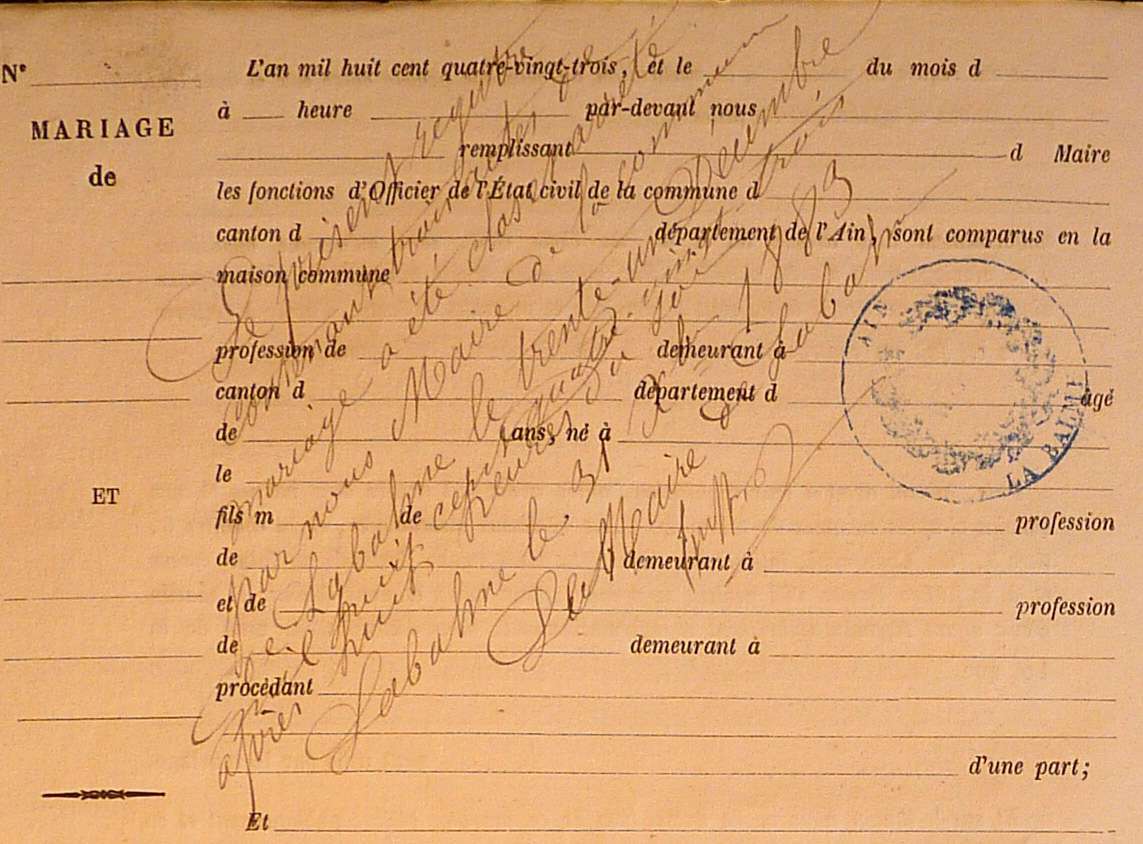 N°
L'an mil huit cent quatre-vingt-trois, et le du mois d
à heure par-devant nous
MARIAGE
remplissant d Maire
de
les fonctions d'Officier de l'État civil de la commune d
canton d département de l'Ain, sont comparus en la
maison commune
profession de demeurant à
canton d département d âgé
de ans, né à
le
ET
fils m de profession
de demeurant à
et de profession
de demeurant à
procédant
d'une part;
Et
Le présent registre
contenant trois actes de
mariage a été clos et arrêté
par nous Maire de la commune
de Labalme le trente-un Décembre
mil huit cent quatre-vingt trois
après huit heures du soir
Labalme le 31 Xbre 1883
Le Maire de Labalme
AIN
LA BALME